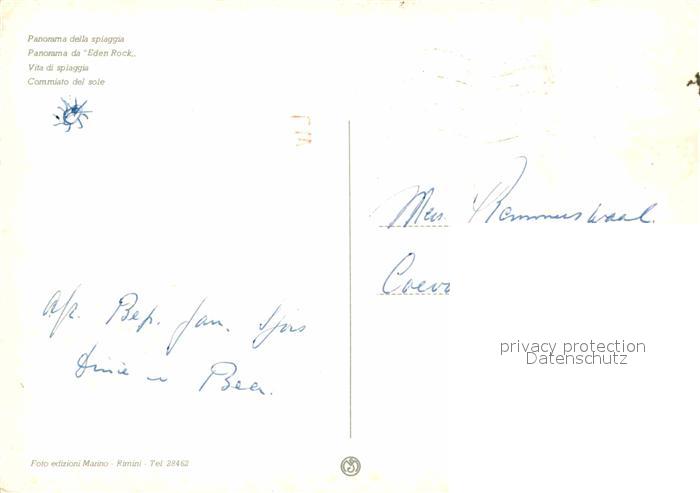 Panorama della spiaggia
Panorama da "Eden Rock„
Vita di spiaggia
Commiato del sole
Afz. Bep. Jan. Sjors
Dinie en Bea.
Coevo
privacy protection
Datenschutz
Foto edizioni Marino - Rimini - Tel 28462